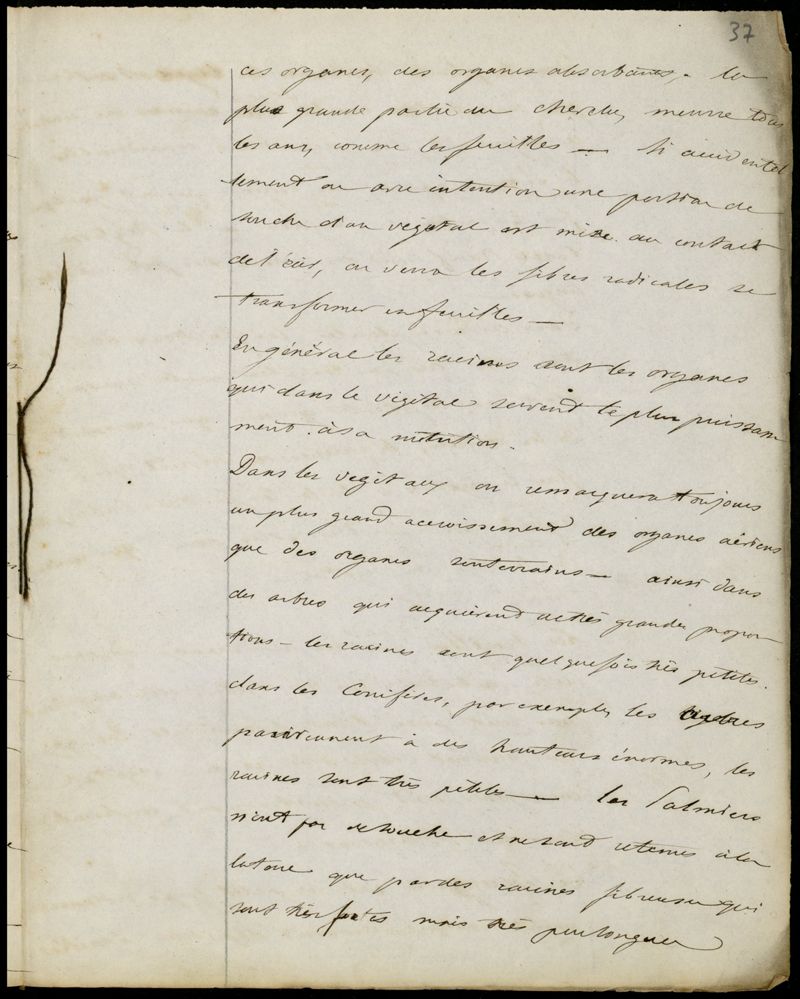 37
ces organes, des organes absorbants, la
plus grande partie du chevelu, meurre tous
les ans, comme les feuilles — Si accidentel
lement ou avec intention une portion de
souche d'un végétal est mise au contact
de l'air, on verra les fibres radicales se
transformer en feuilles —
En général les racines sont les organes
qui dans le végétal servent le plus puissam
ment à sa nutrition.
Dans les végétaux on remarquera toujours
un plus grand accroissement des organes aériens
que des organes souterrains — ainsi dans
des arbres qui acquièrent de très grandes propor
tions — les racines sont quelquefois très petites.
dans les Conifères, par exemple, les cèdres
parviennent à des hauteurs énormes, les
racines sont très petites — les Palmiers
n'ont pas de souche et ne sont retenus à la
terre que par des racines fibreuses qui
sont très fortes mais très peu longues